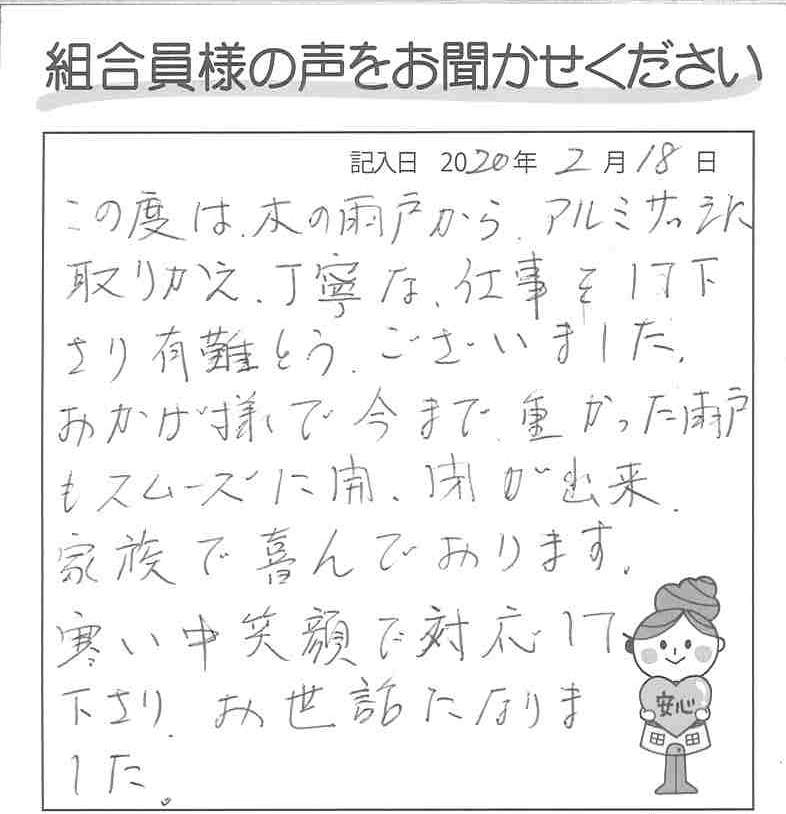 組合員様の声をお聞かせください
記入日 2020年 2月18日
この度は、木の雨戸から、アルミサッシに
取りかえ、丁寧な、仕事をして下
さり有難とう、ございました。
おかげ様で今まで、重かった雨戸
もスムーズに開、閉が出来、
家族で喜んでおります。
寒い中笑顔で対応して
下さり、お世話になりま
した。
安心